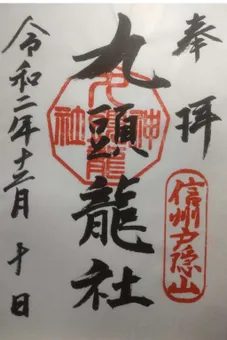 奉拝
信州戸隠山
九頭龍社
九頭龍神社
令和二年十二月十日